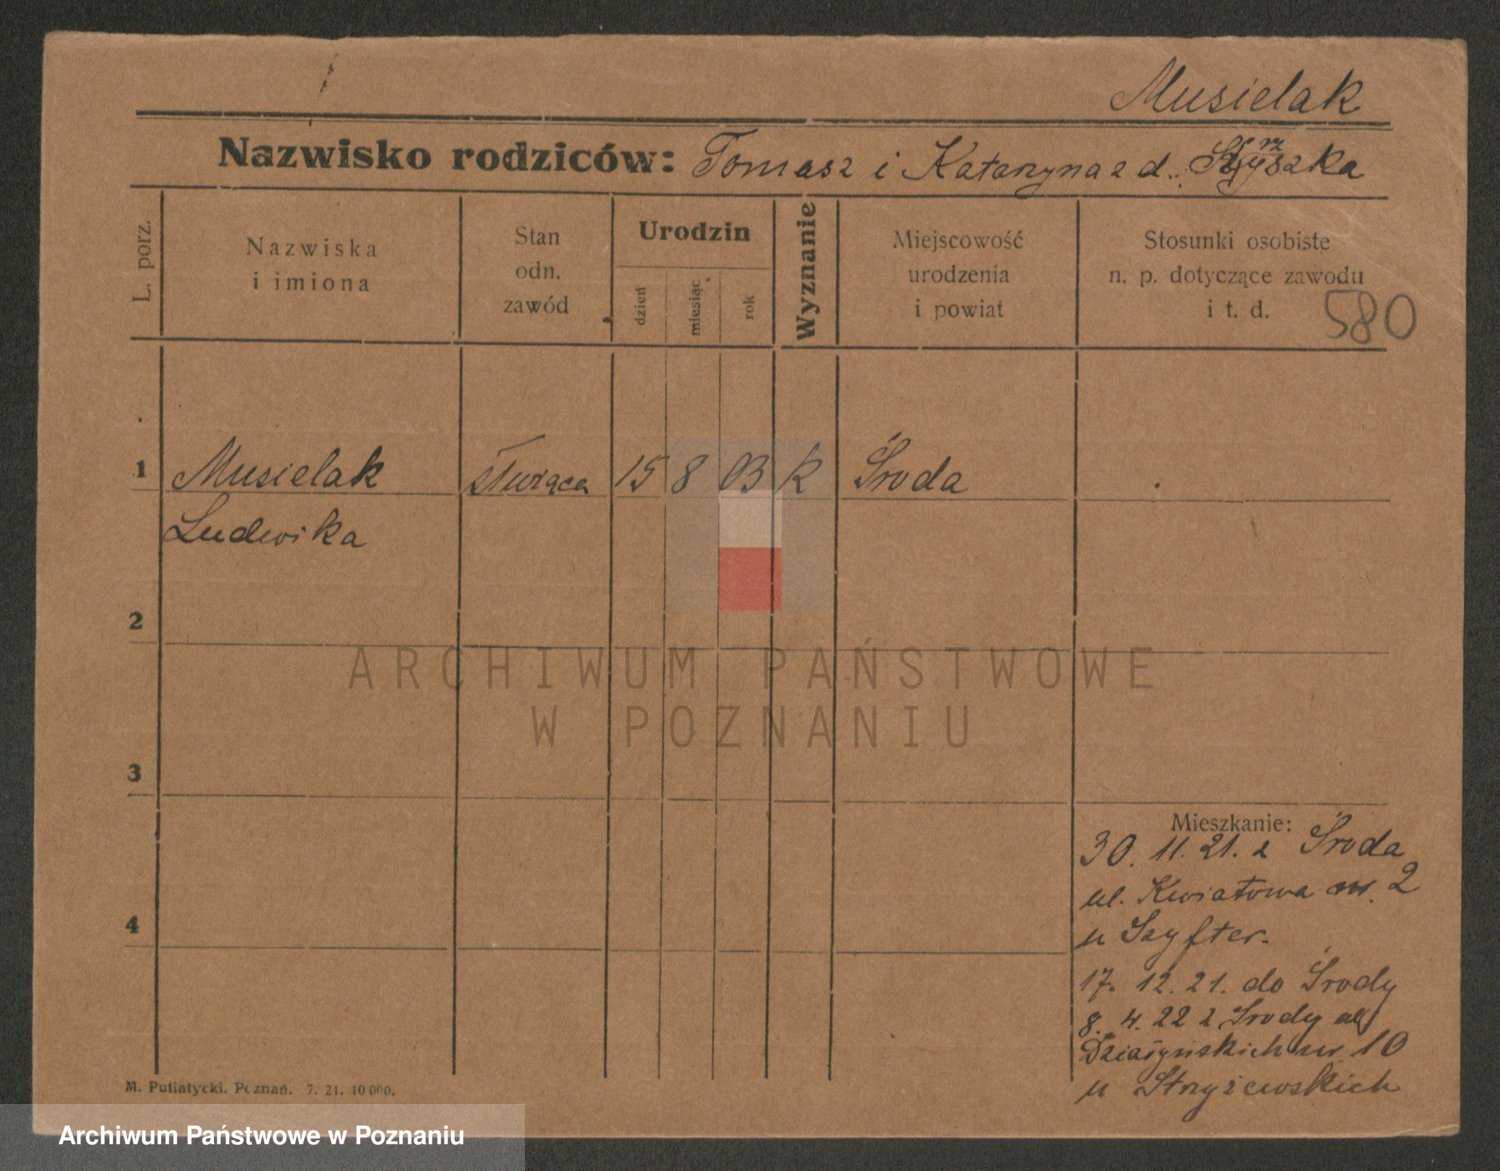 Musielak
Nazwisko rodziców: Tomasz i Katarzyna z d.
L. porz.
Nazwiska
i imiona
Stan
odn.
zawód
Urodzin
dzień
miesiąc
rok
Wyznanie
Miejscowość
urodzenia
i powiat
Stosunki osobiste
n. p. dotyczące zawodu
i t. d.
580
1 Musielak służąca 15 8 03 k Środa
Ludwika
2
ARCHIWUM PAŃSTWOWE
W POZNANIU
3
Mieszkanie:
30. 11. 21. z Środa
ul. Kwiatowa nr. 2
4
u Szyfter.
17. 12. 21. do Środy
8. 4. 22 z Środy ul
Działyńskich nr 10
u Stryżewskich
M. Putiatycki. Poznań. 7. 21. 10 000.
Archiwum Państwowe w Poznaniu